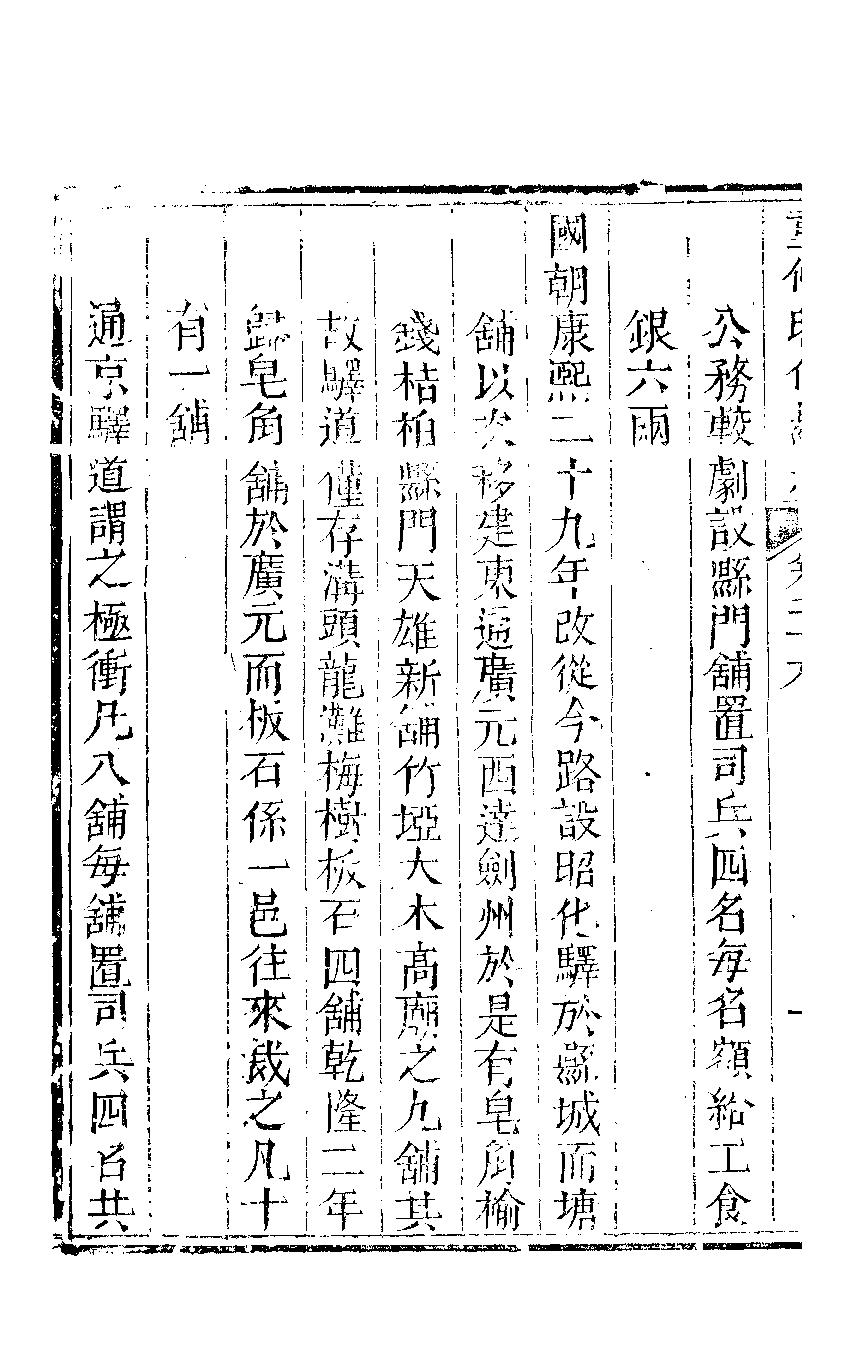 公務較劇設縣門舖置司兵四名每名額給工食
銀六兩
國朝康熙二十九年改從今路設昭化驛於縣城而塘
舖以次移建東逓廣元西達劍州於是有皂角榆
錢桔柏縣門天雄新舖竹埡大木高廟之九舖其
故驛道僅存溝頭龍灘梅樹板石四舖乾隆二年
歸皂角舖於廣元而板石係一邑往來裁之凡十
有一舖
通京驛道謂之極衝凡八舖每舖置司兵四名共